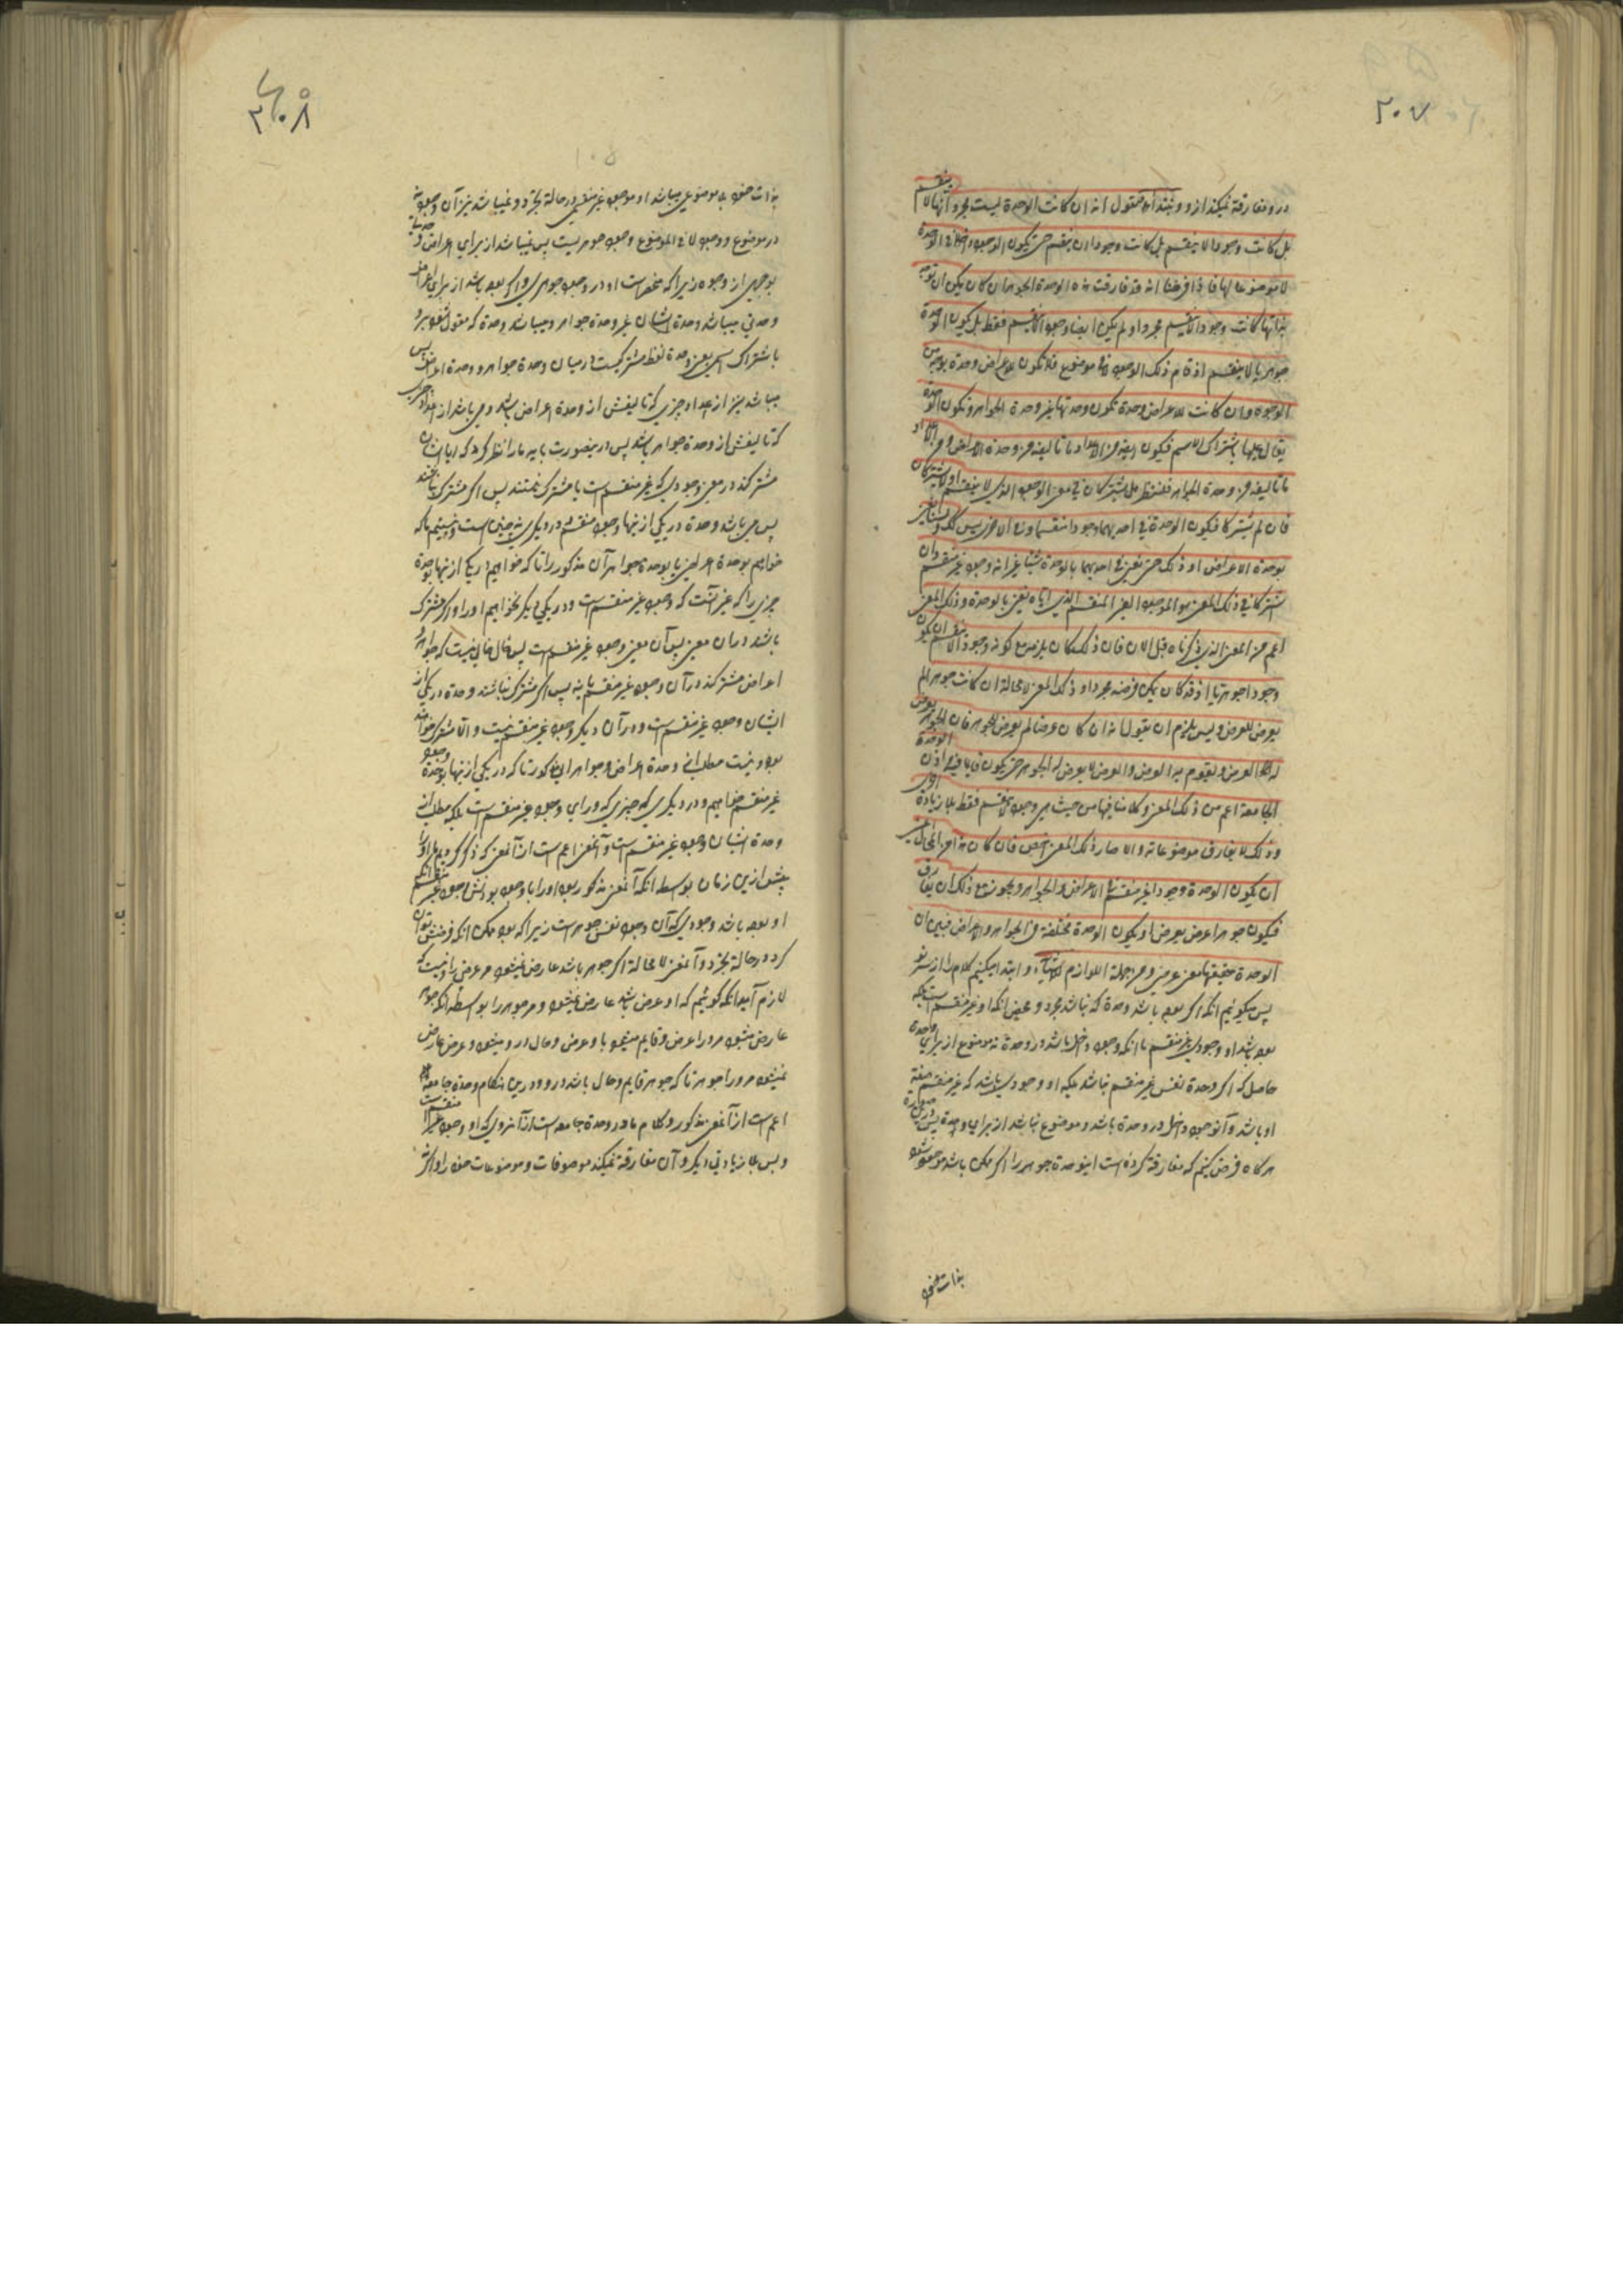 ٢٠٧
در و مفارقة نمیکند ازو و نبتدأ فنقول انه ان كانت الوحدة ليست مجرد انها لا ينقسم
بل كانت وجودا لا ينقسم بل كانت وجودا لا ينقسم حتى يكون الوجود داخلا في الوحدة
لا موضوعا لها فاذا فرضنا انه قد فارقت هذه الوحدة الجوهر ان كان يمكن ان توجد
بذاتها كانت وجودا لا ينقسم مجردا و لم يكن ايضا وجودا لا ينقسم فقط بل يكون الوحدة
جوهريا لا ينقسم اذ قام ذلك الوجود لا في موضوع فلا تكون للاعراض وحدة بوجه من
الوجوه و ان كانت للاعراض وحدة تكون وحدتها غير وحدة الجواهر و تكون الوحدة
يقال عليها باشتراك الاسم فيكون ايضا من الاعداد ما تاليفه من وحدة الاعراض و من الاعداد
ما تاليفه من وحدة الجواهر فلننظر هل يشتركان في معنى الوجود الذي لا ينقسم او لا يشتركان
فان لم يشتركا فيكون الوحدة في احديهما وجودا منقسما و في الاخرى ليس كذلك و لسنا نعني
بوحدة الاعراض او ذلك حتى نعني في احديهما بالوحدة شيئا غير انه وجود غير منقسم و ان
اشتركا في ذلك المعنى هو الموجود الغير المنقسم الذي اياه نعني بالوحدة و ذلك المعنى
اعم من المعنى الذي ذكرناه قبل الان فان ذلك كان يلزمه مع كونه وجودا لا ينقسم ان يكون
وجودا جوهريا اذ قد كان يمكن فرضه مجردا و ذلك المعنى لا محالة ان كانت جوهرا لم
يعرض للعرض و ليس يلزم ان يقول انه ان كان عرضا لم يعرض للجوهر فان الجوهر يعرض
له العرض و يتقوم به العرض و العرض لا يعرض له الجوهر حتى يكون قايما فيه اذن الوحدة
الجامعة اعم من ذلك المعنى و كلامنا فيها من حيث هي وجود لا ينقسم فقط بلا زيادة اخرى
و ذلك لا يفارق موضوعاته و الا صار ذلك المعنى الاخص فان كان من المحال
ان يكون الوحدة وجودا غير منقسم في الاعراض و الجواهر و يجوز مع ذلك ان يفارق
فيكون جوهرا عرض يعرض او يكون الوحدة مختلفة في الجواهر و الاعراض فبين ان
الوحدة حقيقتها معنى عرضي و من جملة اللوازم للاشياء و ابتدا میکنیم کلام را از سر نو
پس میگوئیم آنکه اگر بوده باشد وحدة که نباشد مجرد و محض آنکه او غیر منقسم است بلکه
بوده باشد او وجودی غیر منقسم تا آنکه وجود داخل باشد در وحدة نه موضوع از برای وحدة
حاصل که اگر وحدة نفس غیر منقسم نباشد بلکه او وجودی باشد که غیر منقسم صفة
او باشد و آن وجود داخل در وحدة باشد و موضوع نباشد از برای وحدة پس درین صورة
هرگاه فرض کنیم که مفارقة کرده است این وحدة جوهر را اگر ممکن باشد موجود شود
بذات خود
٣٠٨
بذات خود بلا موضوعی میباشد او موجود غیر منقسمی در حالة تجرد و نمیباشد نیز آن وجود نه
در موضوع و وجود لا في الموضوع وجود جوهر یست پس نمیباشد از برای اعراض وحدة
بوجهی از وجوه زیرا که منحصر است او در وجود جوهری و اگر بوده باشد از برای اعراض
وحدتی میباشد وحدة ایشان غیر وحدة جواهر و میباشد وحدة که مقول شود برو
باشتراک اسمی یعنی وحدة لفظ مشترکیست در میان وحدة جواهر و وحدة اعراض پس
میباشد نیز از اعداد چیزی که تالیفش از وحدة اعراض باشد و می باشد از اعداد چیزی
که تالیفش از وحدة جواهر باشد پس درین صورت باید ما را نظر کرد که ایا ایشان
مشترکند در معنی وجودی که غیر منقسم است یا مشترک نیستند پس اگر مشترک نباشند
پس می باشد وحدة در یکی از اینها وجود منقسم و در دیگری نه چنین است و نیستیم ما که
خواهیم بوحدة اعراض یا بوحدة جواهر آن مذکور را تا که خواهیم در یکی از اینها بوحدة
چیزی را که غیر آنست که وجود غیر منقسم است و در یکی دیگر نخواهیم او را و اگر مشترک
باشند در آن معنی پس آن معنی وجود غیر منقسم است پس خالی نیست که جواهر و
اعراض مشترکند در آن وجود غیر منقسم یا نه پس اگر مشترک نباشند وحدة در یکی از
ایشان وجود غیر منقسم است و در آن دیگر وجود غیر منقسم نیست و الا مشترک خواهند
بود و نیست مطلب از وحدة اعراض و جواهر این مذکور تا که در یکی از اینها بوحدة وجود
غیر منقسم خواهیم و در دیگری که چیزی که ورای وجود غیر منقسم است بلکه مطلب از
وحدة ایشان وجود غیر منقسم است و آن معنی اعم است از آن معنی که ذکر کردیم ما او را
پیش ازین زمان بواسطه آنکه آن معنی مذکور بود او را با وجود بودنش وجود غیر منقسم آنکه
او بوده باشد وجودی که آن وجود نفس جوهر است زیرا که بود ممکن آنکه فرضش توان
کرد در حالة تجرد و آن معنی لا محالة اگر جوهر باشد عارض نمیشود مر عرض را و نیست که
لازم آید آنکه گوئیم که او عرض باشد عارض نمیشود مر جوهر را بواسطه آنکه جوهر
عارض میشود مر او را عرض و قایم میشود با و عرض و حال در و میشود و عرض عارض
نمیشود مر او را جوهر تا که جوهر قایم و حال باشد در و و درین هنگام وحدة جامعه
اعم است از آن معنی مذکور و کلام ما در وحدة جامعه است از آن روی که او وجود غیر منقسم است
و بس بلا زیادتی دیگر و آن مفارقة نمیکند موصوفات و موضوعات خود را و اگر